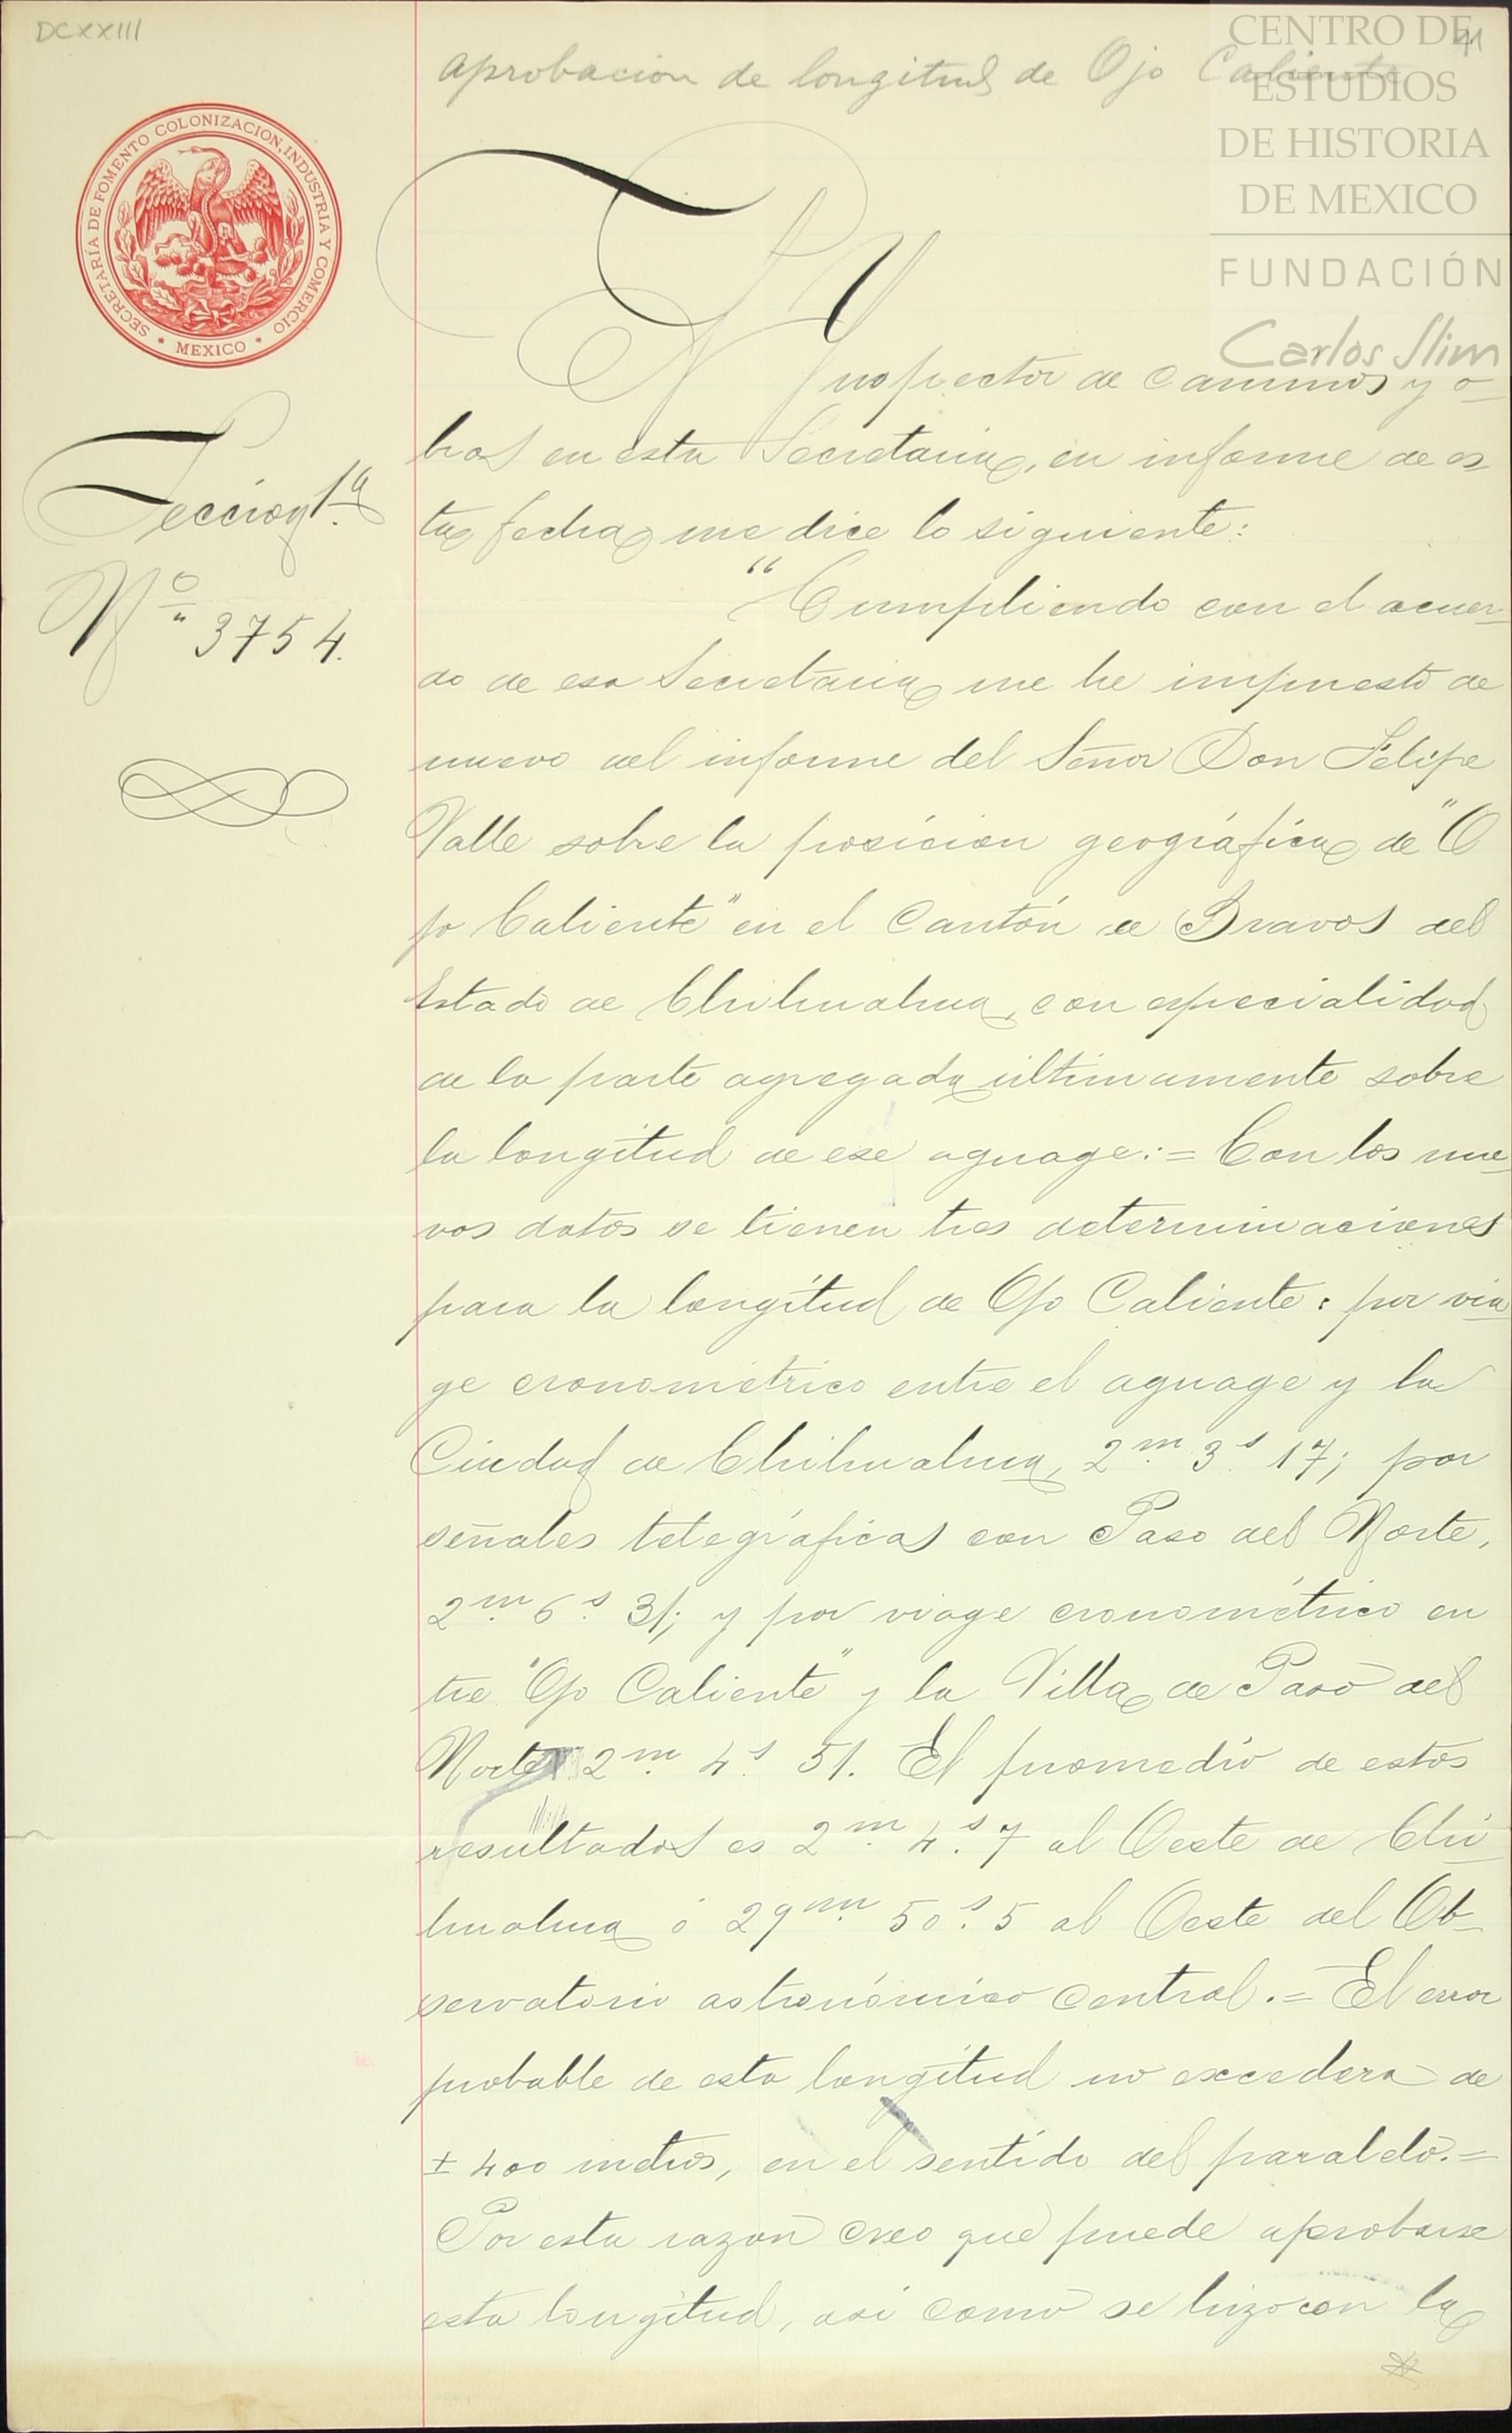 DCXXIII
41
aprobacion de longitud de Ojo Caliente
CENTRO DE
ESTUDIOS
DE HISTORIA
DE MEXICO
FUNDACIÓN
Carlos Slim
SECRETARÍA DE FOMENTO COLONIZACION, INDUSTRIA Y COMERCIO
* MEXICO *
Sección 1ª
Nº 3754.
Inspector de Caminos y o-
bras en esta Secretaria, en informe de es
ta fecha me dice lo siguiente:
"Cumpliendo con el acuer-
do de esa Secretaria me he impuesto de
nuevo del informe del Señor Don Felipe
Valle sobre la posicion geográfica de "O
jo Caliente" en el Cantón de Bravos del
Estado de Chihuahua, con especialidad
de la parte agregada últimamente sobre
la longitud de ese aguage:= Con los nue-
vos datos se tienen tres determinaciones
para la longitud de Ojo Caliente: por via-
ge cronométrico entre el aguage y la
Ciudad de Chihuahua, 2m. 3s. 17; por
señales telegráficas con Paso del Norte,
2m. 6s. 31; y por viage cronométrico en
tre "Ojo Caliente" y la Villa de Paso del
Norte 2m. 4s. 51. El promedio de estos
resultados es 2m. 4s. 7 al Oeste de Chi-
huahua ó 29m. 50s. 5 al Oeste del Ob-
servatorio astronómico Central.= El error
probable de esta longitud no excedera de
± 400 metros, en el sentido del paralelo.=
Por esta razon creo que puede aprobarse
esta longitud, asi como se hizo con la